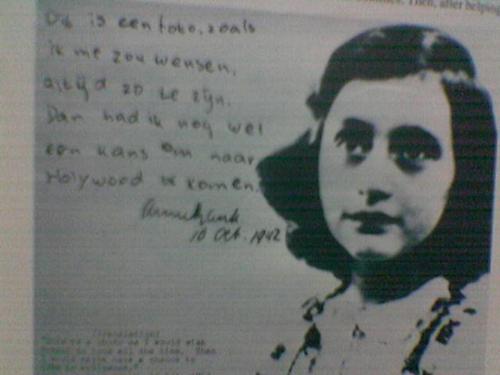 Then, after helping
Dit is een foto, zoals
ik me zou wensen,
altijd zo te zijn.
Dan had ik nog wel
een kans om naar
Holywood te komen.
Annefrank
10 Oct. 1942
(translation)
"This is a photo as I would wish
to look all the time. Then
I would maybe have a chance to